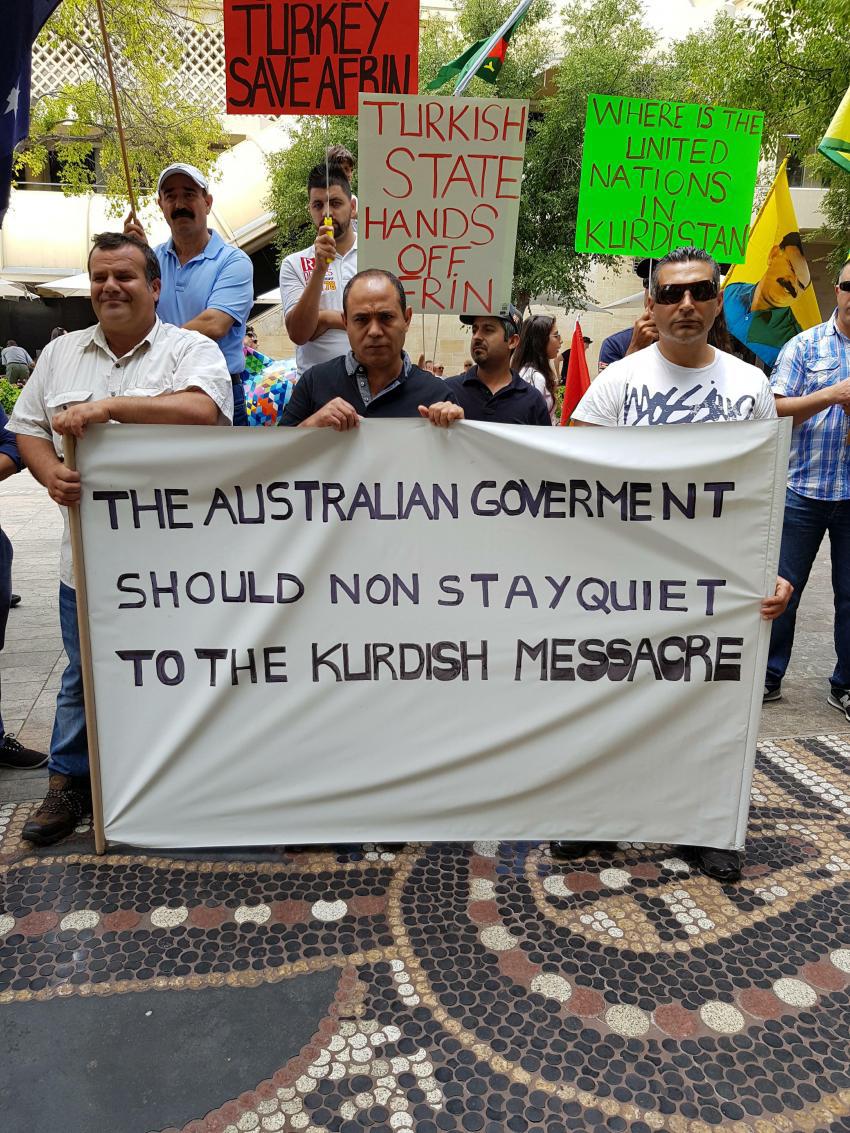 TURKEY
SAVE AFRIN
TURKISH
STATE
HANDS
OFF
FRİN
WHERE IS THE
UNITED
NATIONS
IN
KURDISTAN
THE AUSTRALIAN GOVERMENT
SHOULD NON STAY QUIET
TO THE KURDISH MESSACRE